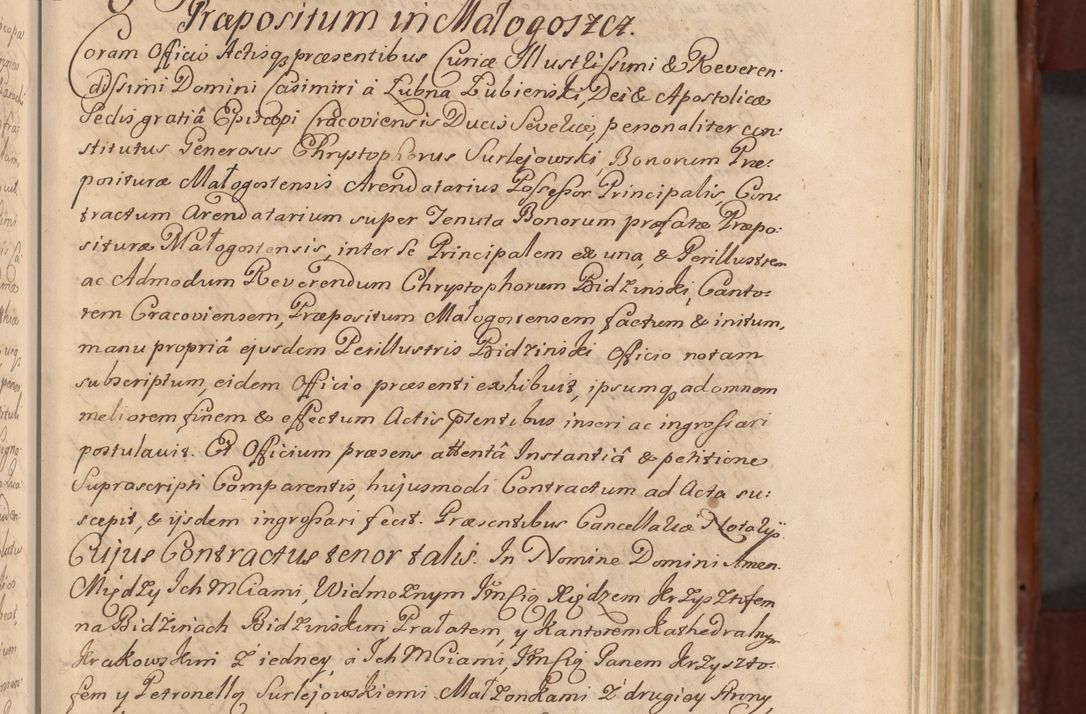 Præpositum in Małogoszcz.
Coram Officio Actisq præsentibus Curiæ Illustrissimi & Reveren-
dissimi Domini Casimiri á Łubna Łubienski, Dei & Apostolicæ
Sedis gratiâ Episcopi Cracoviensis Ducis Severiæ, personaliter con:
stitutus Generosus Chrystophorus Surlejowski, Bonorum Præ:
posituræ Małogostensis Arendatarius Possessor Principalis, Con:
tractum Arendatarium super Tenuta Bonorum præfatæ Præpo:
situræ Małogostensis, inter Se Principalem ex una, & Perillustrem
ac Admodum Reverendum Chryptophorum Bidzinski, Canto:
rem Cracoviensem, Præpositum Małogostensem factum & initum,
manu propriâ ejusdem Perillustris Bidzinski Officio notam
subscriptum, eidem Officio præsenti exhibuit, ipsumq ad omnem
meliorem finem & effectum Actis pntibus inseri ac ingrossari
postulavit. Et Officium præsens attentâ Instantiâ & petitione
Suprascripti Comparentis, hujusmodi Contractum ad Acta su:
scepit, & ijsdem ingrossari fecit. Præsentibus Cancellariæ Notarÿs.
Cujus Contractus tenor talis. In Nomine Domini Amen.
Między Ich MCiami, Wielmożnym Jm̃Scią Xiędzem Krzysztofem
na Bidzinach Bidzinskim, Prałatem, y Kantorem Kathedralnym
Krakowskim z iedney, á Ich MCiami, Jm̃Scią Panem Krzyszto-
fem y Petronellą Surlejowskiemi Małżonkami z drugiey strony,